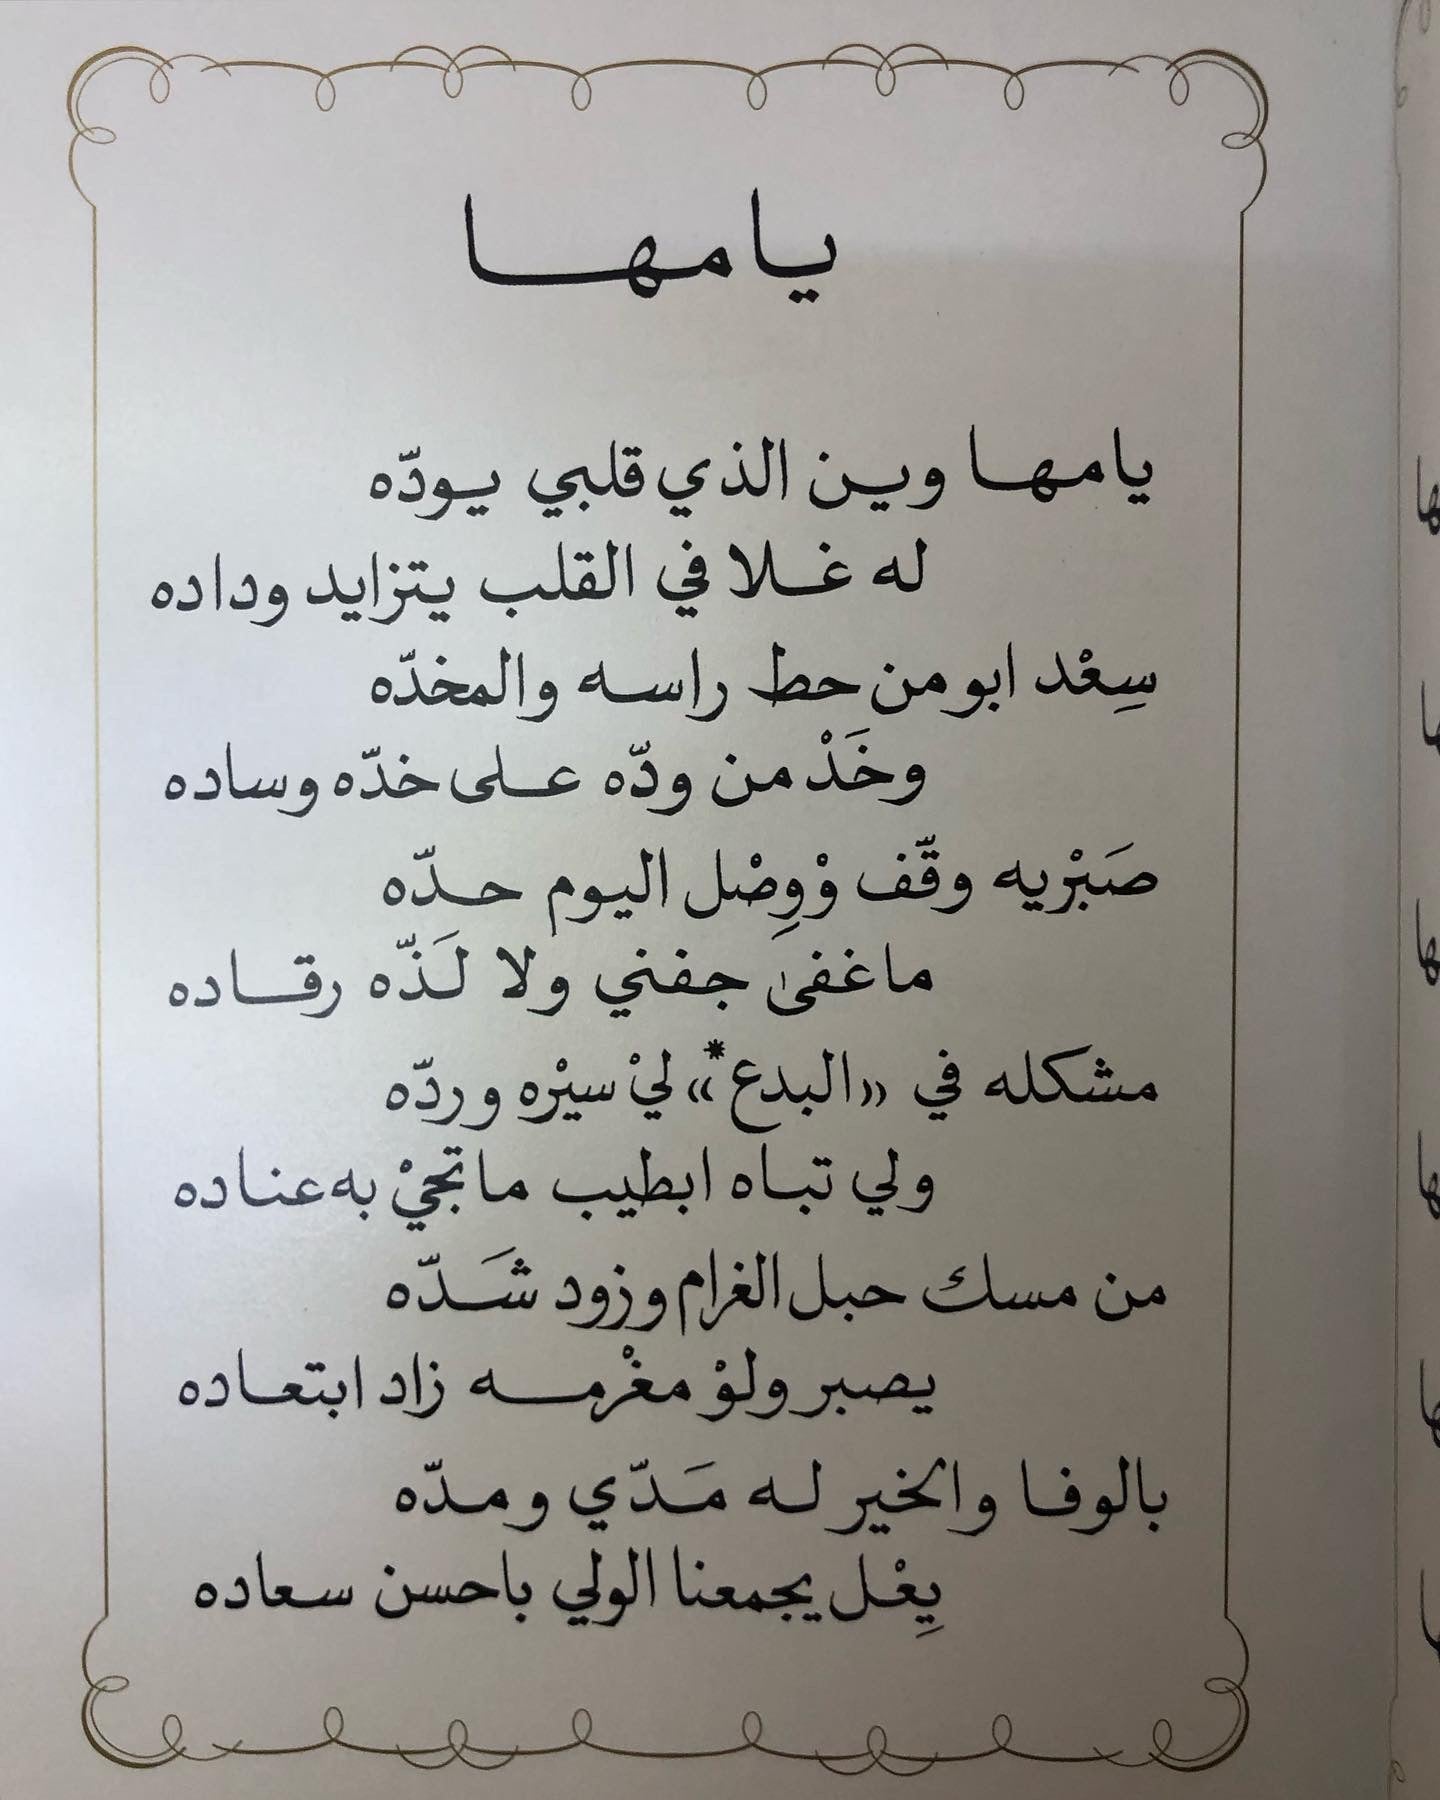 يا مها
يا مها وين الذي قلبي يودّه
له غلا في القلب يتزايد وداده
سِعْد ابو من حط راسه والمخدّه
وخَذْ من ودّه على خدّه وساده
صَبْريه وقّف وْوِصْل اليوم حدّه
ما غفىٰ جفني ولا لَذّه رقاده
مشكله في «البدع*» ليْ سيْره وردّه
ولي تباه ابطيب ما تجيْ به عناده
من مسك حبل الغرام وزود شَدّه
يصبر ولوْ مغْرمه زاد ابتعاده
بالوفا والخير له مَدّي ومدّه
يِعْل يجمعنا الولي باحسن سعاده